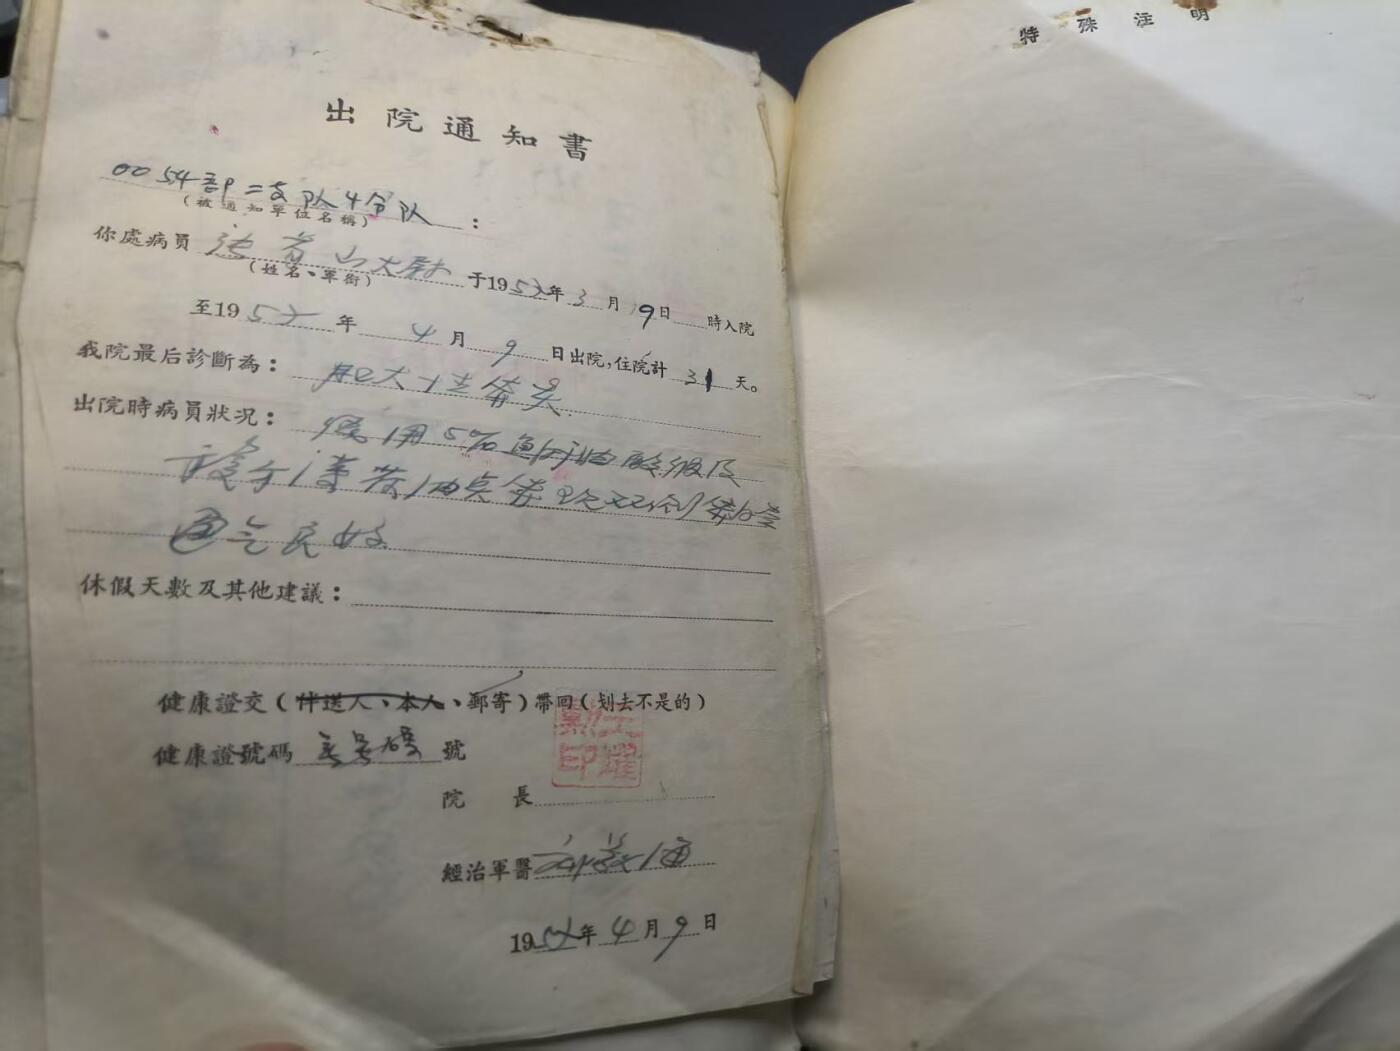 特殊注明
出院通知書
0054部二支队4分队 :
(被通知單位名稱)
你處病員 山大尉 于1957年3月19日 時入院
(姓名、軍銜)
至1957年4月9日出院,住院計31天。
我院最后診斷為: 肥大性鼻炎
出院時病員狀况: 使用5%魚肝油酸鈉及
鼻 双侧鼻腔
通气良好
休假天數及其他建議:
健康證交(伴送人、本人、郵寄)帶回(划去不是的)
健康證號碼 无号碼 號
印
院 長
經治軍醫
1957年4月9日